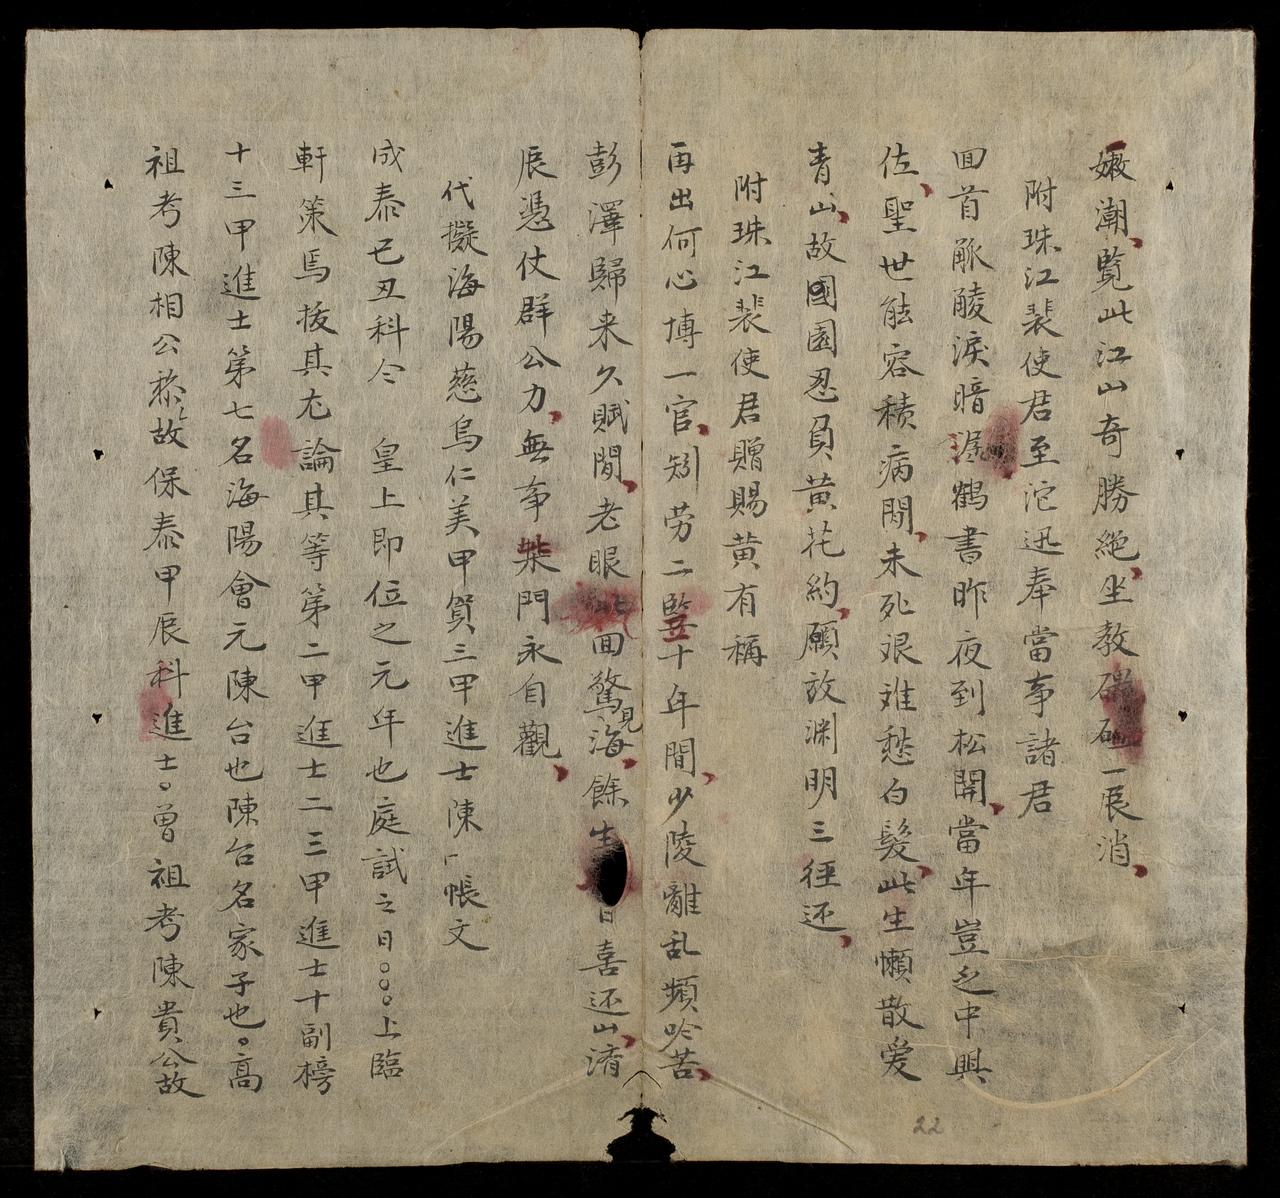 嫩潮覧此江山奇勝絶坐教礧磈一辰消
附珠江裴使君至沱迅奉當亊諸君
囬首觚稜淚暗潺鶴書昨夜到松関當年豈乏中興
佐聖世能容積病閒未死艰难愁白髮此生懶散爱
青山故國園忍負黄花約願放渊明三徑还
附珠江裴使君贈賜黄有稱
再出何心博一官劬劳二竪十年間少陵離乱頻吟苦
彭澤歸来久賦閒老眼囬驚見海餘生日喜还山濟
辰憑仗群公力無亊柴門永自觀
代擬海陽慈烏仁美甲賀三甲進士陳帳文
成泰己丑科仝 皇上即位之元年也庭試之日上臨
軒策焉拔其尤論其等第二甲進士二三甲進士十副榜
十三甲進士第七名海陽會元陳台也陳台名家子也高
祖考陳相公故保泰甲辰科進士曾祖考陳貴公故
22